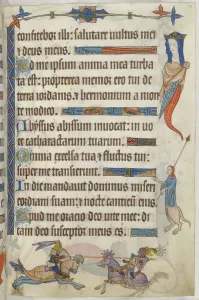 confitebor illi: salutare uultus mei
et deus meus.
Ad me ipsum anima mea turba
ta est: propterea memor ero tui de
terra iordanis et hermonium a mon
te modico.
Abyssus abyssum inuocat: in uo
ce catharactarum tuarum.
Omnia excelsa tua et fluctus tui:
super me transierunt.
In die mandauit dominus miseri
cordiam suam: et nocte canticum eius.
Apud me oracio deo uite mee: di
cam deo susceptor meus es.